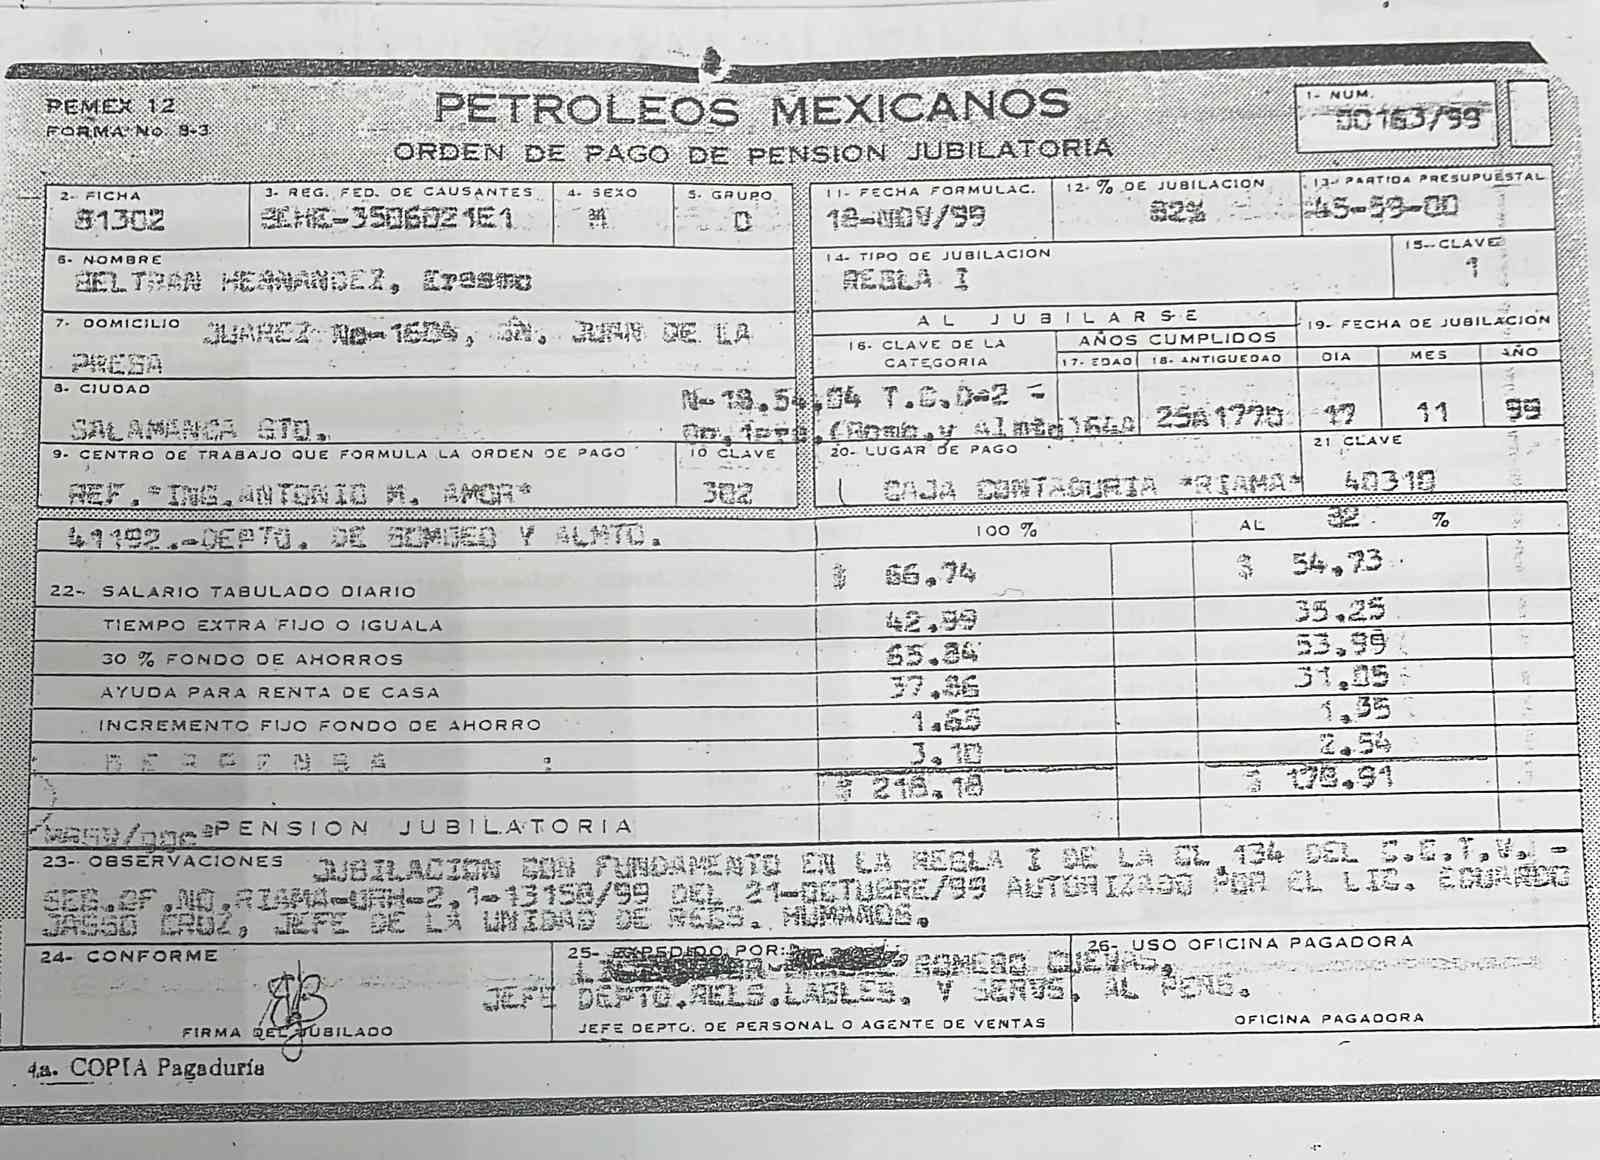 PEMEX 12
FORMA No. 8-3
PETROLEOS MEXICANOS
ORDEN DE PAGO DE PENSION JUBILATORIA
1- NUM.
00163/99
2- FICHA
81302
3- REG. FED. DE CAUSANTES
BEHE-3506021E1
4- SEXO
M
5- GRUPO
0
11- FECHA FORMULAC.
18-NOV/99
12- % DE JUBILACION
82%
13- PARTIDA PRESUPUESTAL
45-59-00
6- NOMBRE
BELTRAN HERNANDEZ, Erasmo
14- TIPO DE JUBILACION
REGLA I
15- CLAVE
1
7- DOMICILIO JUAREZ No-1604, SN. JUAN DE LA
PRESA
AL JUBILARSE
16- CLAVE DE LA CATEGORIA
AÑOS CUMPLIDOS
17- EDAD
18- ANTIGUEDAD
19- FECHA DE JUBILACION
DIA
MES
AÑO
8- CIUDAD
SALAMANCA GTO.
N-18.54.04 T.C.D-2 -
Op.1era.(Bomb.y Almto)64A
25A177D
17
11
99
9- CENTRO DE TRABAJO QUE FORMULA LA ORDEN DE PAGO
REF."ING.ANTONIO M. AMOR"
10 CLAVE
302
20- LUGAR DE PAGO
CAJA CONTADURIA "RIAMA"
21 CLAVE
40310
41192.-DEPTO. DE BOMBEO Y ALMTO.
100 %
AL 82 %
22- SALARIO TABULADO DIARIO $ 66.74 $ 54.73
TIEMPO EXTRA FIJO O IGUALA 42.99 35.25
30 % FONDO DE AHORROS 65.84 53.99
AYUDA PARA RENTA DE CASA 37.86 31.05
INCREMENTO FIJO FONDO DE AHORRO 1.65 1.35
DESPENSA : 3.10 2.54
$ 218.18 $ 178.91
PENSION JUBILATORIA
23- OBSERVACIONES JUBILACION CON FUNDAMENTO EN LA REGLA I DE LA CL 134 DEL C.C.T.V.,-
SEG.OF.NO.RIAMA-URH-2.1-13158/99 DEL 21-OCTUBRE/99 AUTORIZADO POR EL LIC. EDUARDO
JASSO CRUZ, JEFE DE LA UNIDAD DE RECS. HUMANOS.
24- CONFORME
FIRMA DEL JUBILADO
25- EXPEDIDO POR:
ROMERO CUEVAS,
JEFE DEPTO.RELS.LABLES. Y SERVS. AL PENS.
JEFE DEPTO. DE PERSONAL O AGENTE DE VENTAS
26- USO OFICINA PAGADORA
OFICINA PAGADORA
4a. COPIA Pagaduría